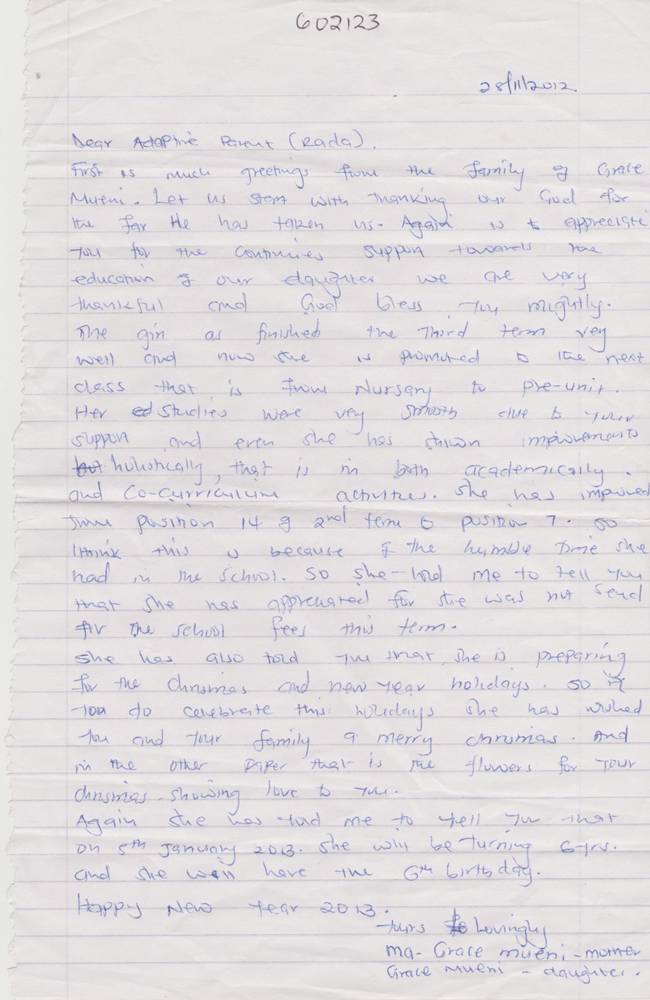 602123
28/11/2012
Dear Adoptive Parent (Rada).
First is much greetings from the family of Grace
Mueni. Let us start with thanking our God for
the far He has taken us. Again is to appreciate
you for the continues support towards the
education of our daughter we are very
thankful and God bless you mightly.
The girl as finished the Third term very
well and now she is promoted to the next
class that is from Nursary to pre-unit.
Her ed studies were very smooth due to your
support and even she has shown improvements
but holistically, that is in both academically.
and co-curriculum activities. She has improved
from position 14 of 2nd term to position 7. So
I think this is because of the humble time she
had in the school. So she told me to tell you
that she has appreciated for she was not send
for the school fees this term.
She has also told you that, she is preparing
for the chrismas and new year holidays. So if
you do celebrate this holidays she has wished
you and your family a merry chrismas. And
in the other paper that is the flowers for your
chrismas. showing love to you.
Again she has told me to tell you that
on 5th January 2013. she will be turning 6yrs.
and she will have the 6th birthday.
Happy New Year 2013.
Yours Lovingly
ma- Grace Mueni - mother
Grace Mueni - daughter.